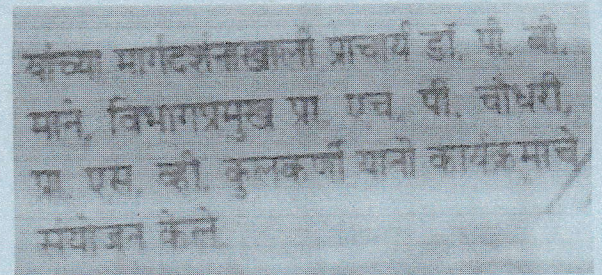 यांच्या मार्गदर्शनाखाली प्राचार्य डॉ. पी. बी.
माने, विभागप्रमुख प्रा. एच. पी. चौधरी,
प्रा. एस. व्ही. कुलकर्णी यांनी कार्यक्रमाचे
संयोजन केले.